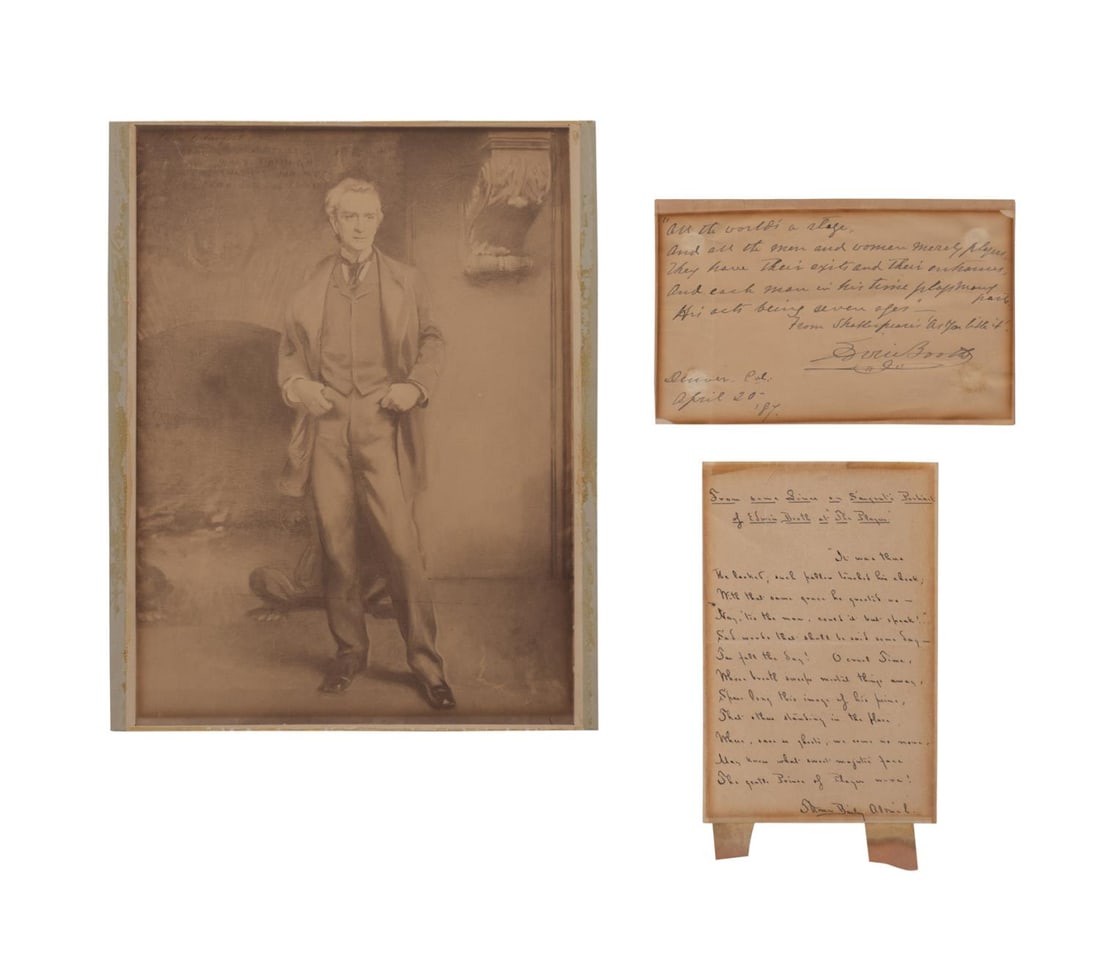 "All the world's a stage,
And all the men and women merely players
They have their exits and their entrances,
And each man in his time plays many
parts
His acts being seven ages" —
From Shakespeare's "As You Like it"
Edwin Booth
Denver, Col.
April 20
'87.
From some Lines on Sargent's Portrait
of Edwin Booth at "The Players"
"It was thus
He looked, such pallor tinched his cheek,
With that same grace he greeted us —
Nay, 'tis the man, could it but speak!"
Sad words that shall be said some day —
Far fall the day! O cruel Time,
Whose breath sweeps mortal things away,
Spare long this image of his prime,
That others standing in the place
Where, save as ghosts, we come no more,
May know what sweet majestic face
The gentle Prince of Players wore!
Thomas Bailey Aldrich.